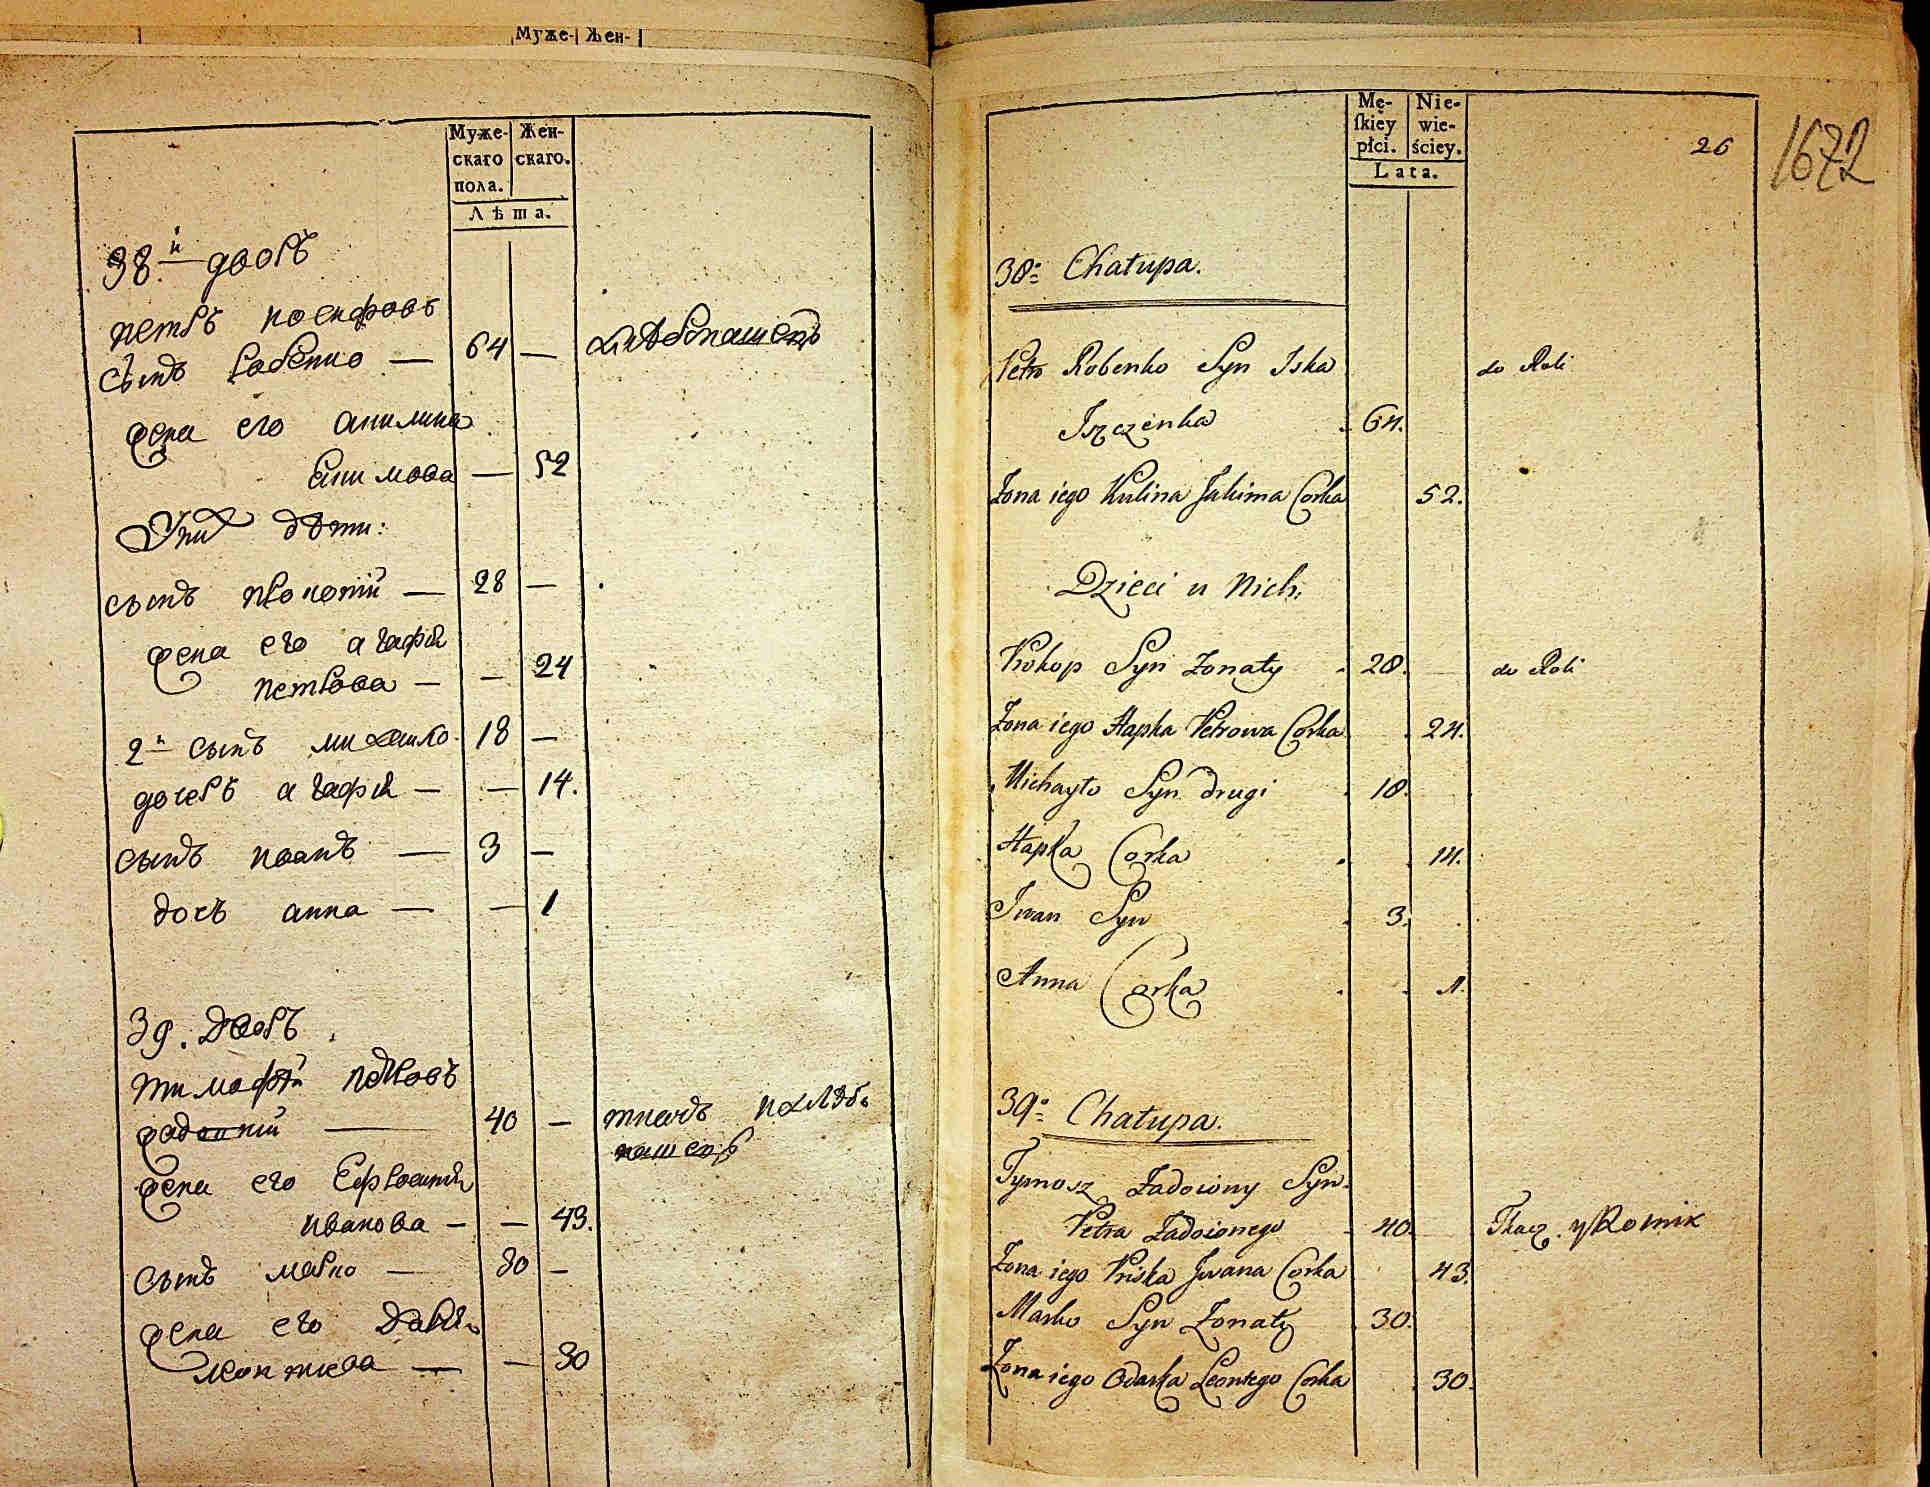 Муже- Жен-
Муже- Жен-
скаго скаго.
пола.
Лѣта.
38й дворъ
петръ иосифовъ
сынъ рабенко — 64 — хлѣбопашецъ
жена его акилина
Екимова — 52
У них дѣти:
сынъ прокопій — 28 —
жена его агафія
петрова — — 24
2й сынъ михайло 18 —
дочеръ агафія — — 14.
сынъ иванъ — 3 —
дочъ анна — — 1
39. дворъ
тимофѣй петровъ
40 — ткачъ и хлѣбо
пашецъ
жена его Ефросинія
иванова — — 43.
сынъ марко — 30 —
жена его дарія
леонтиева — — 30
Mę- Nie-
skiey wie-
płci. ściey.
Lata.
26
1672
38o Chałupa.
Petro Robenko Syn Iska do Roli
Iszczenka 64.
Żona iego Kulina Jakima Corka 52.
Dzieci u Nich:
Prokop Syn Żonaty 28. do Roli
Żona iego Hapka Petrowa Corka 24.
Michayło Syn drugi 18.
Hapka Corka 14.
Iwan Syn 3.
Anna Corka 1.
39o Chałupa.
Tymosz Zadoiony Syn
Petra Zadoionego 40. Tkacz. y Rolnik
Żona iego Priska Jwana Corka 43.
Marko Syn Żonaty 30.
Żona iego Odarka Leontego Corka 30.